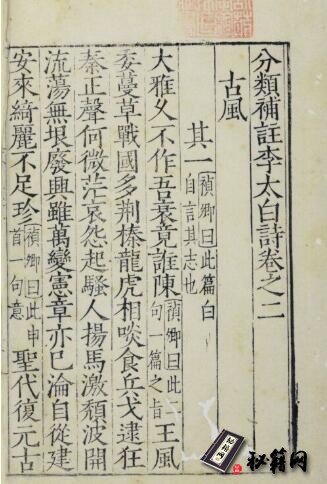 分類補註李太白詩卷之二
古風
其一禎卿曰此篇白自言其志也
大雅久不作吾衰竟誰陳禎卿曰此一句一篇之旨王風
委蔓草戰國多荆榛龍虎相啖食兵戈逮狂
秦正聲何微茫哀怨起騷人揚馬激頹波開
流蕩無垠廢興雖萬變憲章亦已淪自從建
安來綺麗不足珍禎卿曰此申首一句意聖代復元古
秘籍网